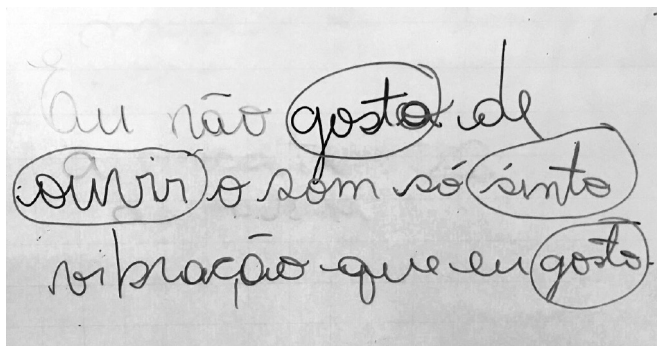 Eu não gosto de
ouvir o som só sinto
vibração que eu gosto.